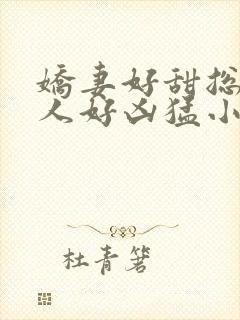 嬌妻好甜总
人好凶猛小
杜青箬